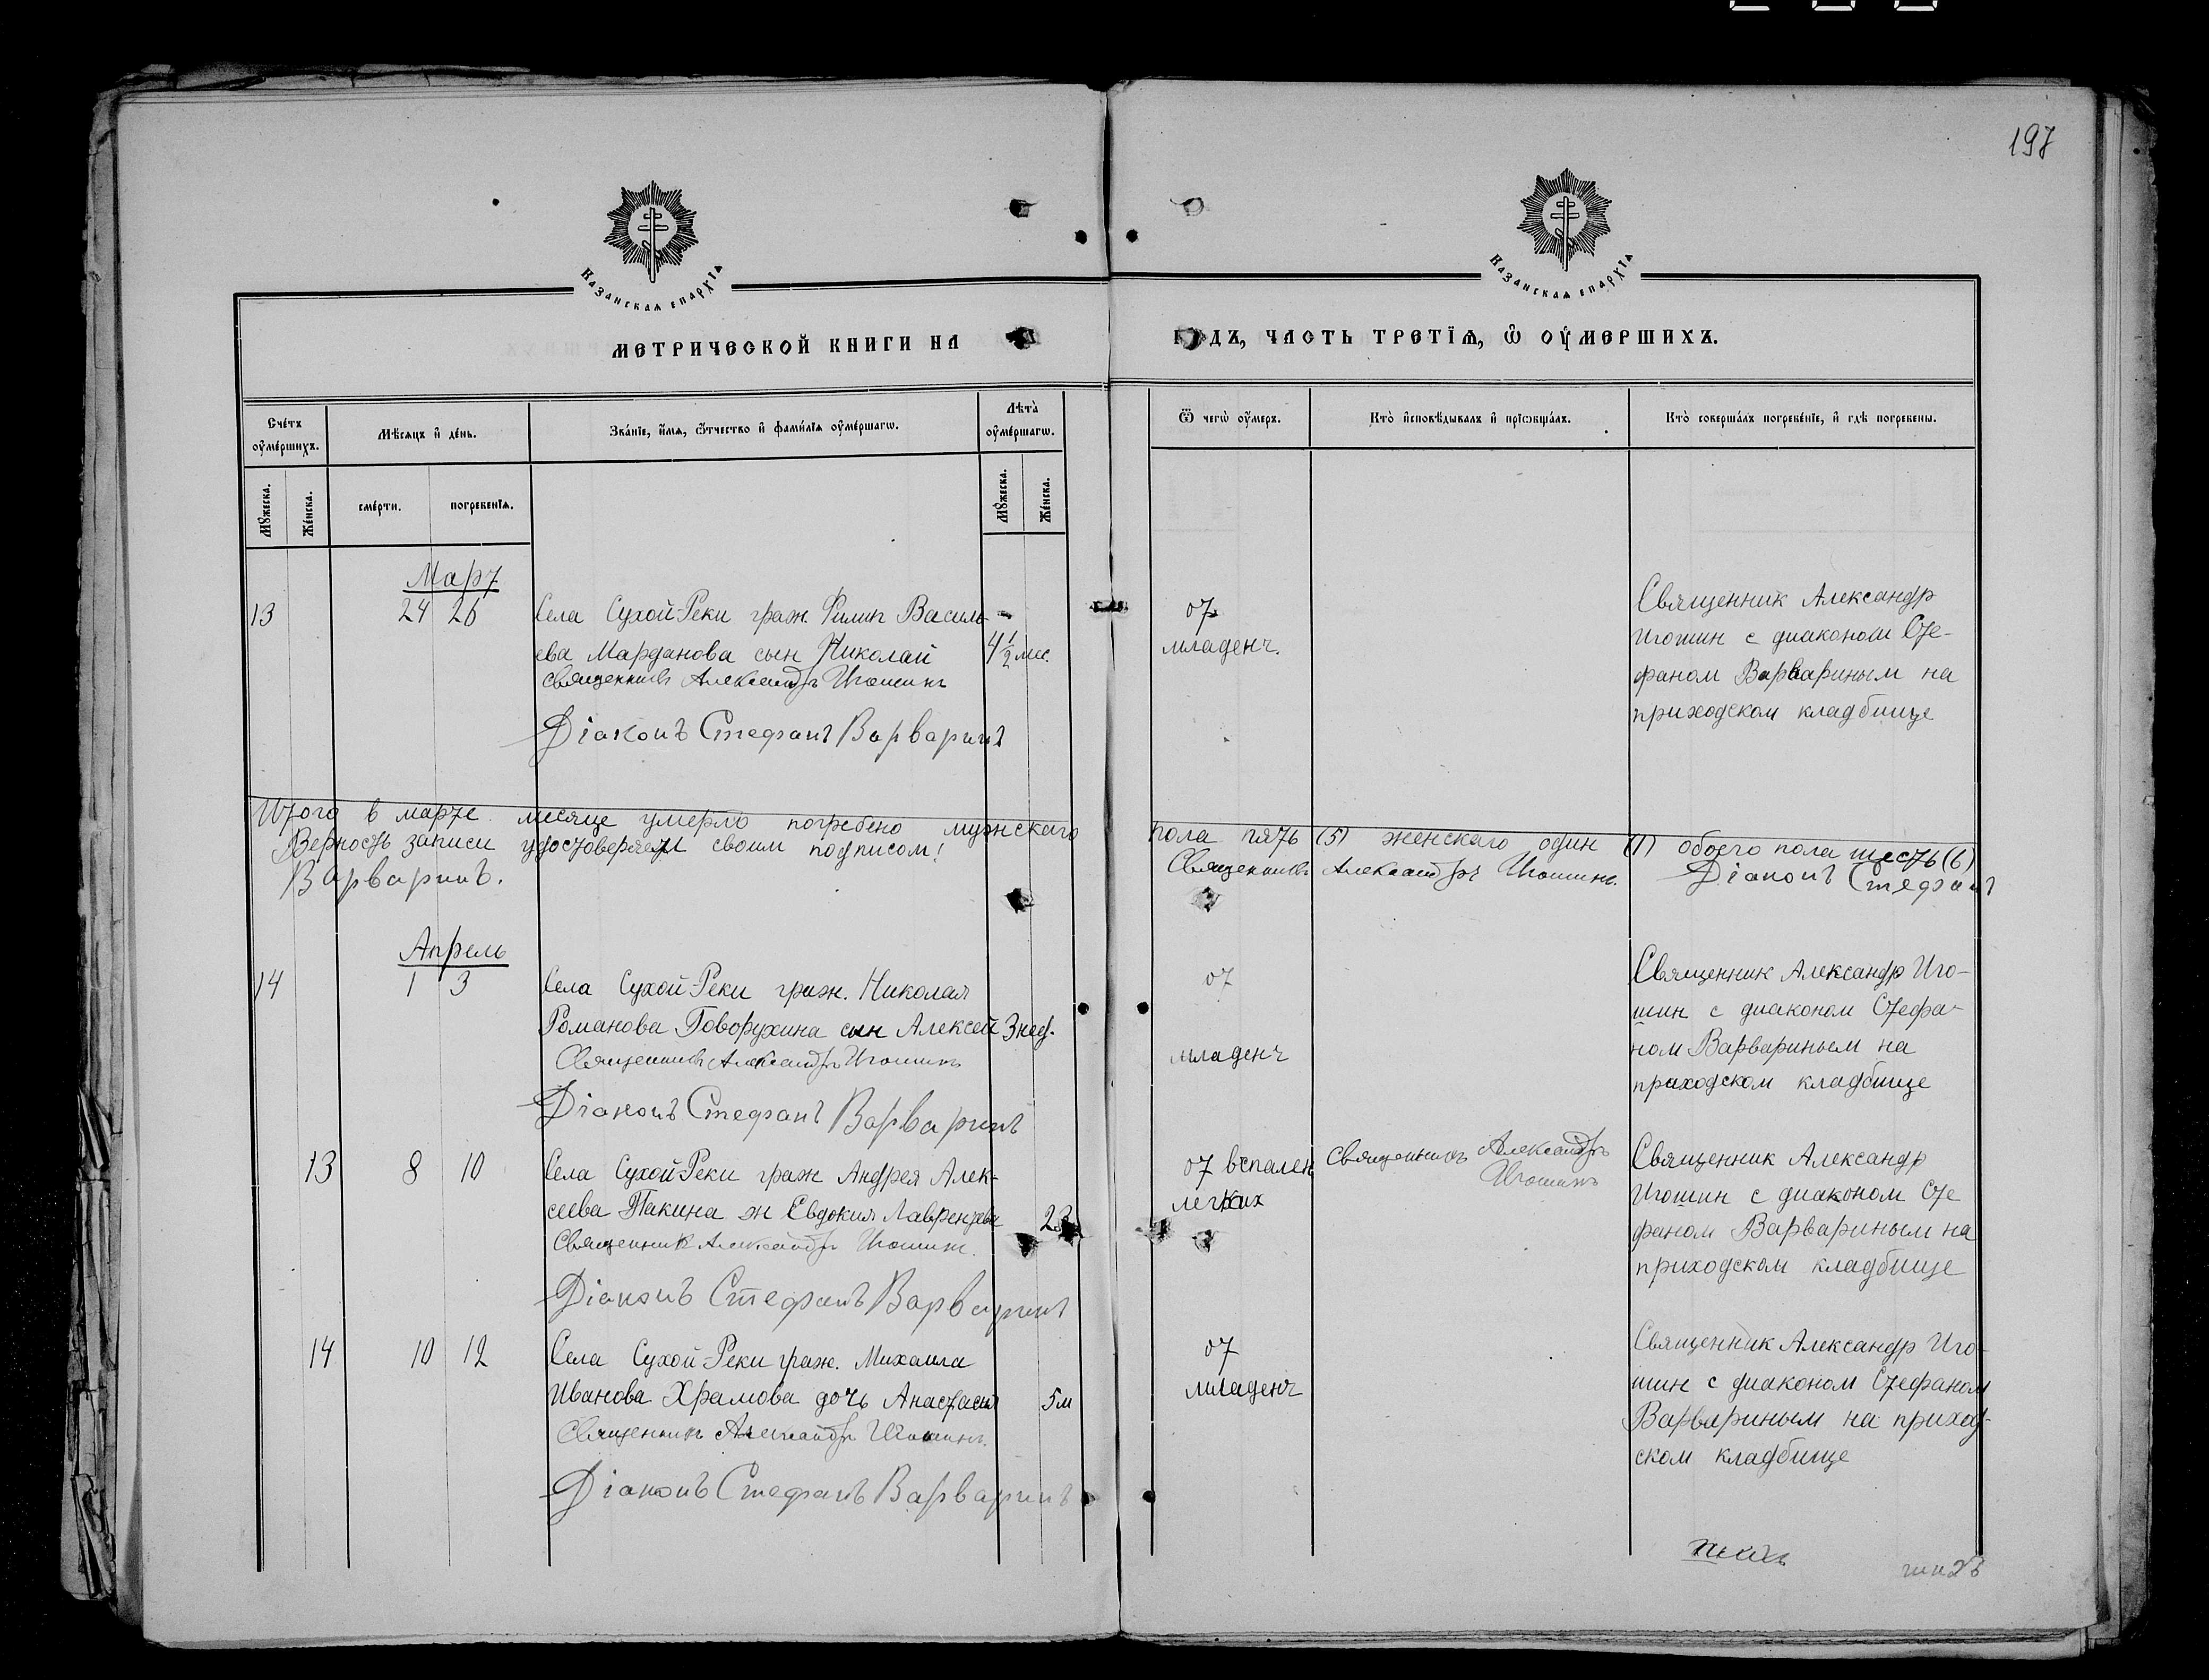 197
Казанская епархїѧ
Казанская епархїѧ
МЕТРИЧЕСКОЙ КНИГИ НА
ГОДЪ, ЧАСТЬ ТРЕТЇѦ, Ѡ ОУМЕРШИХЪ.
Сче́тъ оу҆ме́ршихъ.
Мѣ́сѧцъ и҆ де́нь.
Зва́нїе, и҆́мѧ, ѻ҆́тчество и҆ фами́лїѧ оу҆ме́ршагѡ.
Лѣта̀ оу҆ме́ршагѡ.
Ѿ чегѡ̀ оу҆́меръ.
Кто̀ и҆сповѣ́дывалъ и҆ прїѡбща́лъ.
Кто̀ соверша́лъ погребе́нїе, и҆ гдѣ̀ погребены.
Мꙋ́жеска.
Же́нска.
сме́рти.
погребе́нїѧ.
Мꙋ́жеска.
Же́нска.
Март
13 24 26 Села Сухой-Реки граж. Филип Василь-
ева Марданова сын Николай 4 1/2 мес.
Священникъ Александръ Игошинъ
Дiаконъ Стефанъ Варваринъ
от
младенч.
Священник Александр
Игошин с диаконом Сте-
фаном Варвариным на
приходском кладбище
Итого в марте месяце умерло погребено мужскаго пола пять (5) женскаго один (1) обоего пола шесть (6)
Верность записи удостоверяем своим подписом! Священникъ Александръ Игошинъ. Дiаконъ Стефанъ
Варваринъ.
Апрель
14 1 3 Села Сухой-Реки граж. Николая
Романова Говорухина сын Алексей 3 нед.
Священникъ Александръ Игошинъ
Дiаконъ Стефанъ Варваринъ
от
младенч
Священник Александр Иго-
шин с диаконом Стефа-
ном Варвариным на
приходском кладбище
13 8 10 Села Сухой-Реки граж Андрея Алек-
сеева Пакина ж Евдокия Лаврентева 23
Священник Александръ Игошинъ.
Дiаконъ Стефанъ Варваринъ
от вспален
легких
Священникъ Александръ
Игошинъ
Священник Александр
Игошин с диаконом Сте
фаном Варвариным на
приходском кладбище
14 10 12 Села Сухой-Реки граж. Михаила
Иванова Храмова дочь Анастасия 5м
Священникъ Александръ Игошинъ.
Дiаконъ Стефанъ Варваринъ
от
младенч
Священник Александр Иго-
шин с диаконом Стефаном
Варвариным на приход-
ском кладбище